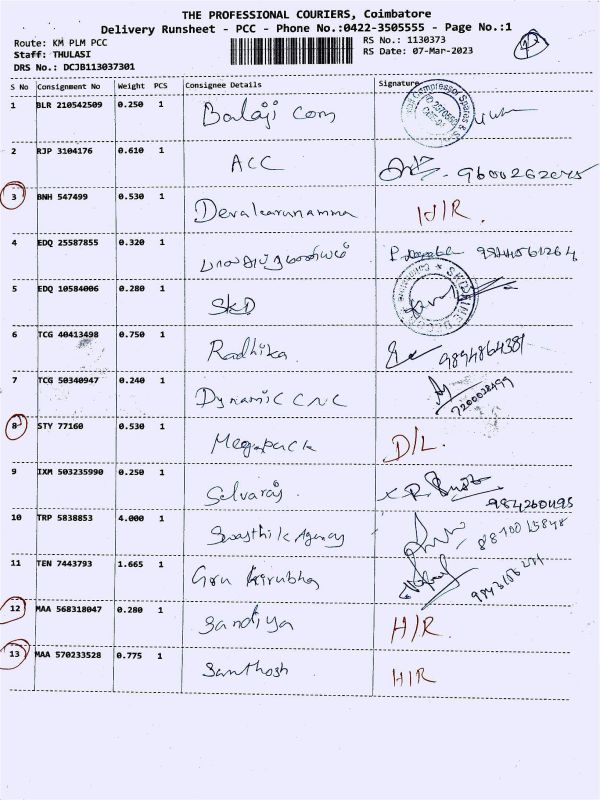 THE PROFESSIONAL COURIERS, Coimbatore
Delivery Runsheet - PCC - Phone No.:0422-3505555 - Page No.:1
Route: KM PLM PCC
RS No.: 1130373
Staff: THULASI
RS Date: 07-Mar-2023
DRS No.: DCJB113037301
S No Consignment No Weight PCS Consignee Details Signature
1 BLR 210542509 0.250 1 Balaji Com
2 RJP 3104176 0.610 1 ACC 9600262045
3 BNH 547499 0.530 1 Devakarunamma H/R.
4 EDQ 25587855 0.320 1 பாலசுப்ரமணியம் 9944561264
5 EDQ 10584006 0.280 1 SKD
6 TCG 40413498 0.750 1 Radhika. 9894864381
7 TCG 50340947 0.240 1 Dynamic CNC
8 STY 77160 0.530 1 Megapack D/L.
9 IXM 503235990 0.250 1 Selvaraj. 9842600495
10 TRP 5838853 4.000 1 Swasthik Agency
11 TEN 7443793 1.665 1 Guru Kirubha
12 MAA 568318047 0.280 1 Sandiya H/R.
13 MAA 570233528 0.775 1 Santhosh H/R